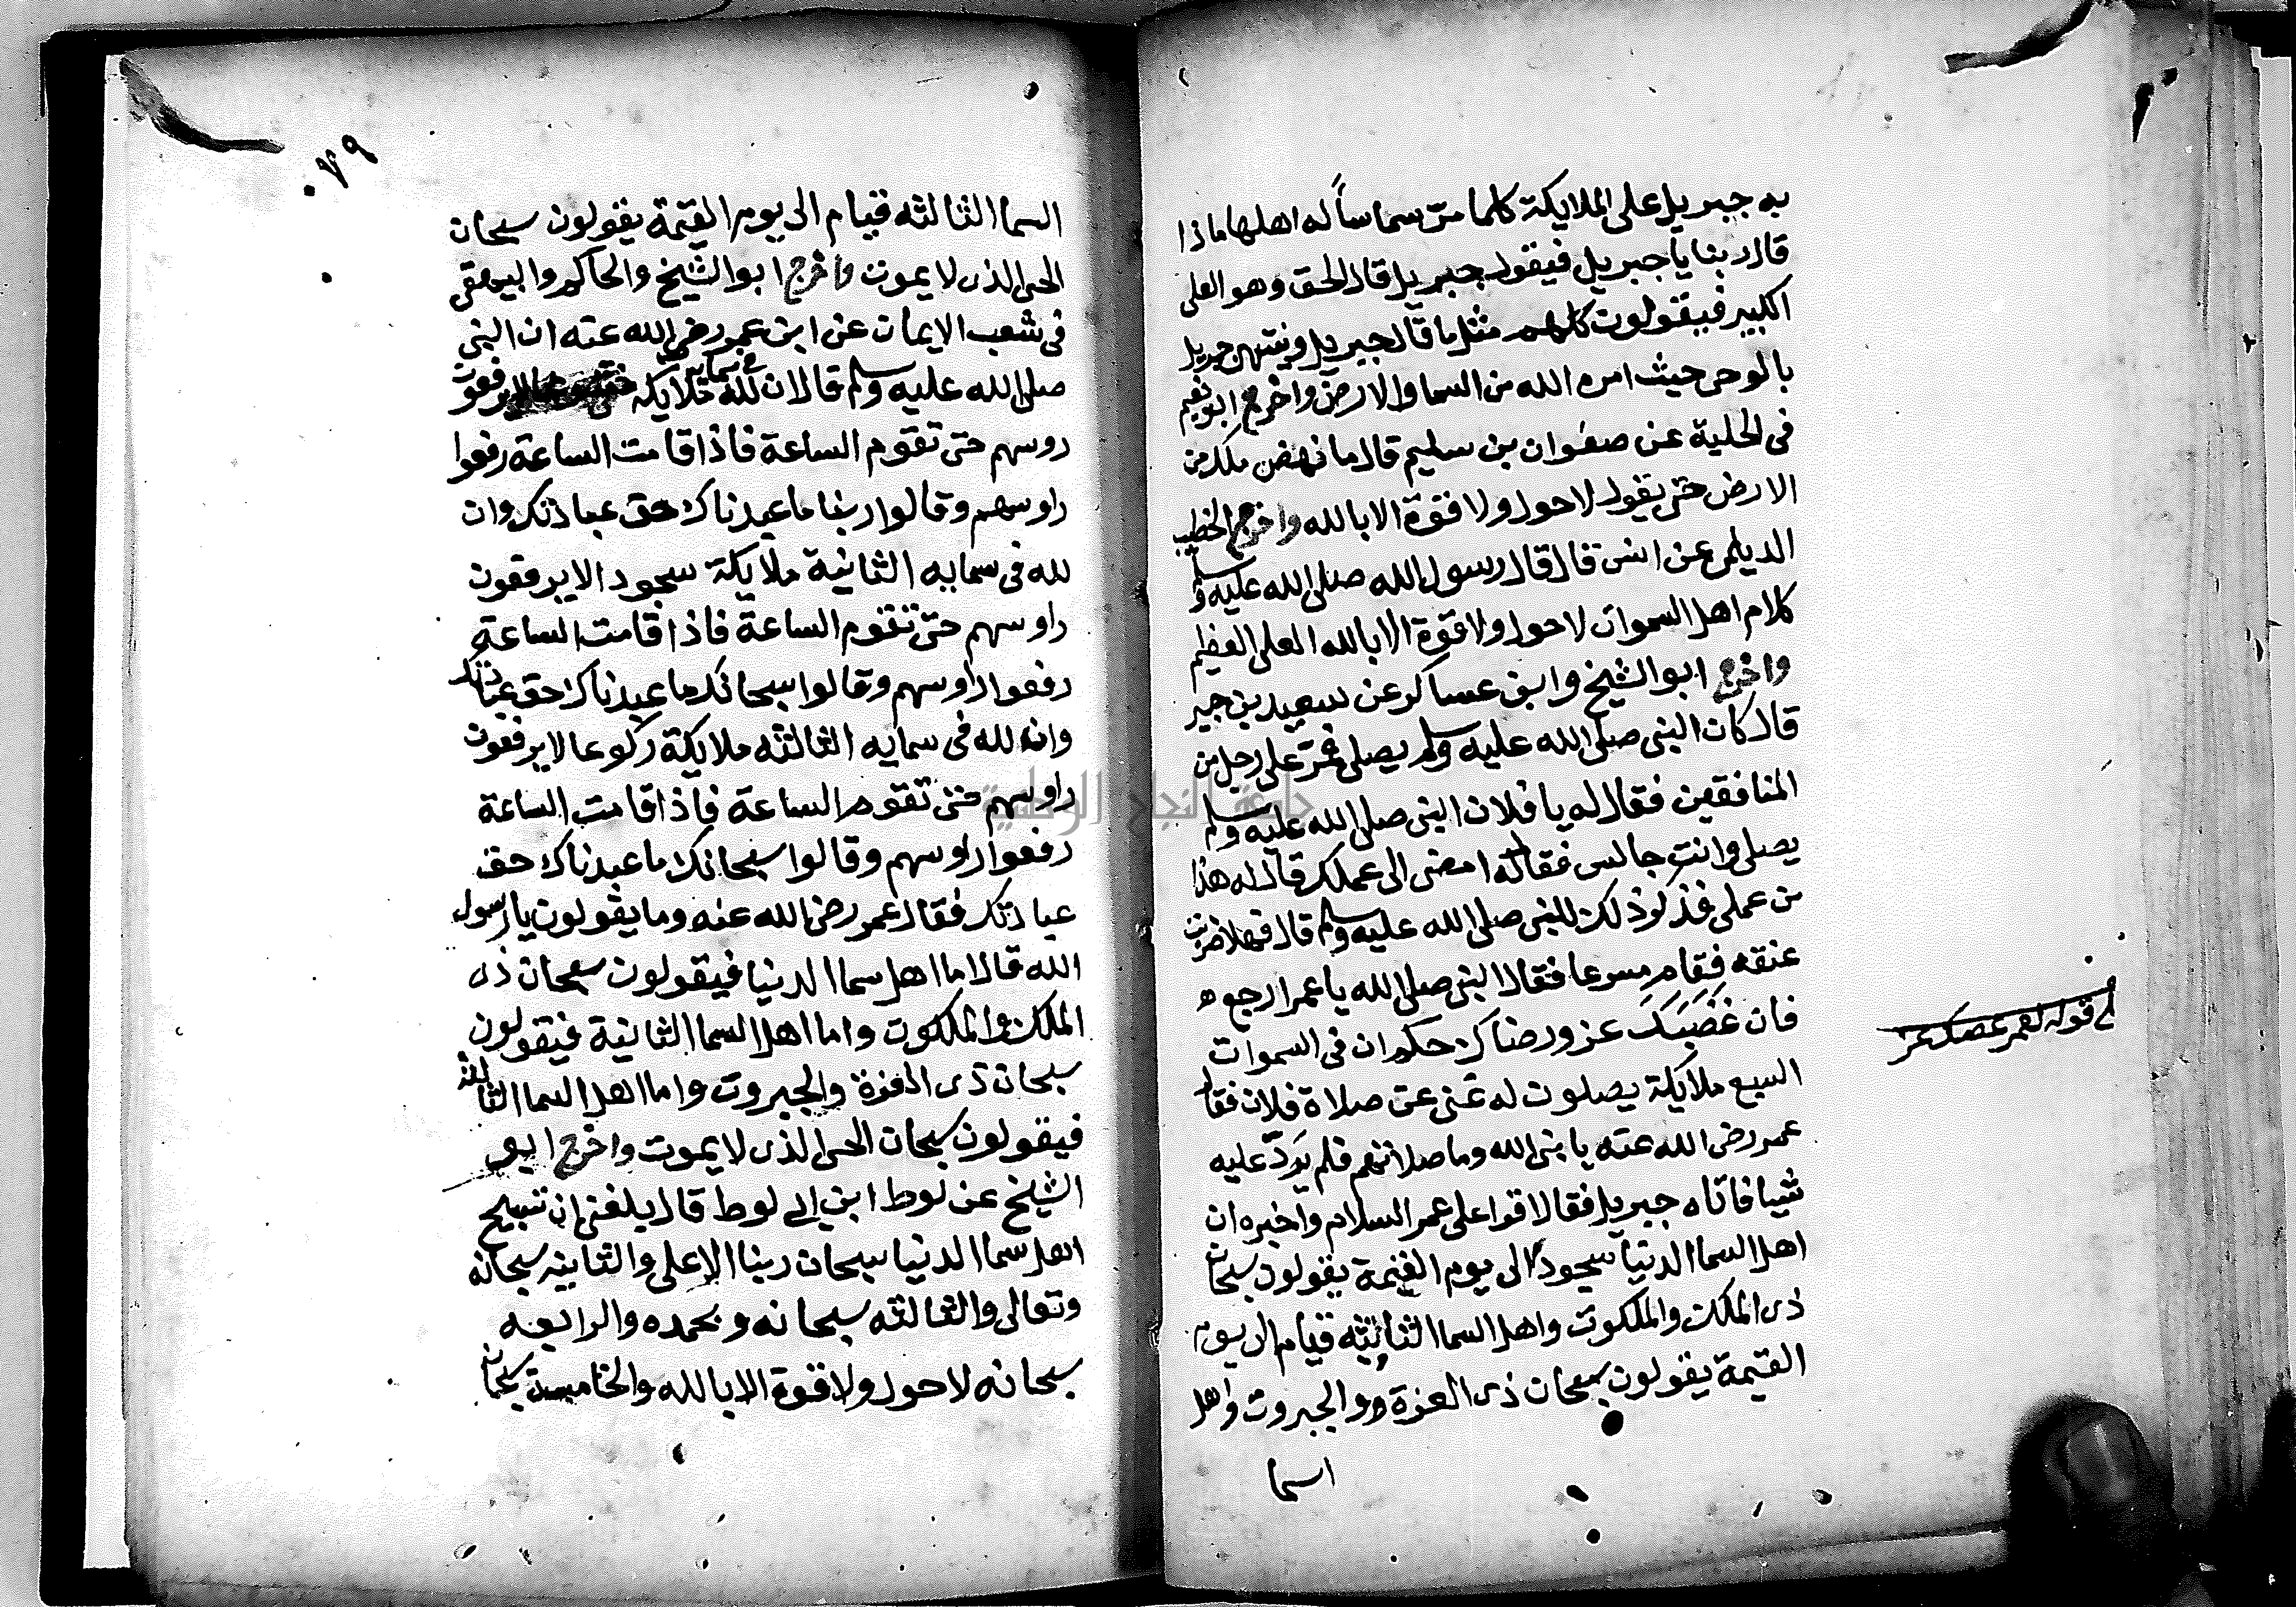 به جبريل على الملايكة كلما مرّ سما سأله اهلها ماذا
قال ربنا يا جبريل فيقول جبريل قال الحق وهو العلى
الكبير فيقولون كلهم مثل ما قال جبريل وينتهى جبريل
بالوحى حيث امره الله من السما والارض واخرج ابو نعيم
فى الحلية عن صفوان بن سليم قال ما نهض ملك من
الارض حتى يقول لا حول ولا قوة الا بالله واخرج الخطيب
الديلمى عن انس قال قال رسول الله صلى الله عليه وسلم
كلام اهل السموات لا حول ولا قوة الا بالله العلى العظيم
واخرج ابو الشيخ وابن عساكر عن سعيد بن جبير
قال كان النبى صلى الله عليه وسلم يصلى فمرّ على رجل من
المنافقين فقال له يا فلان النبى صلى الله عليه وسلم
يصلى وانت جالس فقال له امضى الى عملك قال له هذا
من عملى فذكر ذلك للنبى صلى الله عليه وسلم قال فهلا ضربت
عنقه فقام مسرعا فقال النبى صلى الله يا عمر ارجع
فان غَضَبَكَ عز ورضاك حكم ان فى السموات
السبع ملايكة يصلون له غنى عن صلاة فلان فقال
عمر رضى الله عنه يا نبى الله وما صلاتهم فلم يَرُدّ عليه
شيا فاتاه جبريل فقال اقرا على عمر السلام واخبره ان
اهل السما الدنيا سجود الى يوم القيمة يقولون سبحان
ذى الملك والملكوت واهل السما الثانيه قيام الى يوم
القيمة يقولون سبحان ذى العزة والجبروت واهل
اسما
لى قوله لعمر غضبك عز
٧٩
السما الثالثه قيام الى يوم القيمة يقولون سبحان
الحى الذى لا يموت واخرج ابو الشيخ والحاكم والبيهقى
فى شعب الايمان عن ابن عمر رضى الله عنه ان النبى
صلى الله عليه وسلم قال ان لله فى سمايه ملايكة لا يرفعون
روسهم حتى تقوم الساعة فاذا قامت الساعة رفعوا
راوسهم وقالوا ربنا ما عبدناك حق عبادتك وان
لله فى سمايه الثانية ملايكة سجود الا يرفعون
راوسهم حتى تقوم الساعة فاذا قامت الساعة
رفعوا راوسهم وقالوا سبحانك ما عبدناك حق عبادتك
وان لله فى سمايه الثالثه ملايكة ركوعا لا يرفعون
راوسهم حتى تقوم الساعة فاذا قامت الساعة
رفعوا راوسهم وقالوا سبحانك ما عبدناك حق
عبادتك فقال عمر رضى الله عنه وما يقولون يا رسول
الله قال اما اهل سما الدنيا فيقولون سبحان ذى
الملك والملكوت واما اهل السما الثانية فيقولون
سبحان ذى العزة والجبروت واما اهل السما الثالثه
فيقولون سبحان الحى الذى لا يموت واخرج ابو
الشيخ عن لوط ابن ابى لوط قال بلغنى ان تسبيح
اهل سما الدنيا سبحان ربنا الاعلى والثانيه سبحانه
وتعالى والثالثه سبحانه وبحمده والرابعه
سبحانه لا حول ولا قوة الا بالله والخامسة سبحان
جامعة النجاح الوطنية